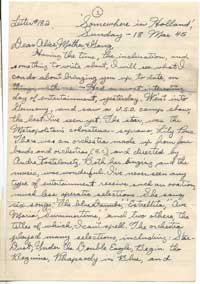 Letter #182
"Somewhere in Holland,"
Sunday - 18 Mar 45
Dear Alice, Mother & Gang,
Having the time, the inclination, and
something to write about I will see what I
can do about bringing you up to date on
things with me. Had a most interesting
day of entertainment yesterday. Went into
Germany and saw a U.S.O. show. Among
the best I've seen yet. The star was the
Metropolitan's coloratura - soprano, Lily Pons.
There was an orchestra made up from our
bands and orchestras and directed by
Andre Kostelanetz. Both her singing and the
music, was wonderful. I've never seen any
type of entertainment receive such an ovation
much less operatic selections. She sang
six songs: The Blue Danube, Estrellita, Ave
Maria, Summertime, and two others the
titles of which, I can't spell. The orchestra
played many selections, including: The
Duel, Under the Double Eagle, Begin the
Beguine, Rhapsody in Blue, and